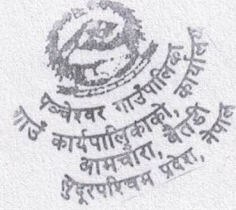 पञ्चेश्वर गाउँपालिका
गाउँ कार्यपालिकाको, कार्यालय
आमचौरा, बैतडी
सुदूरपश्चिम प्रदेश, नेपाल